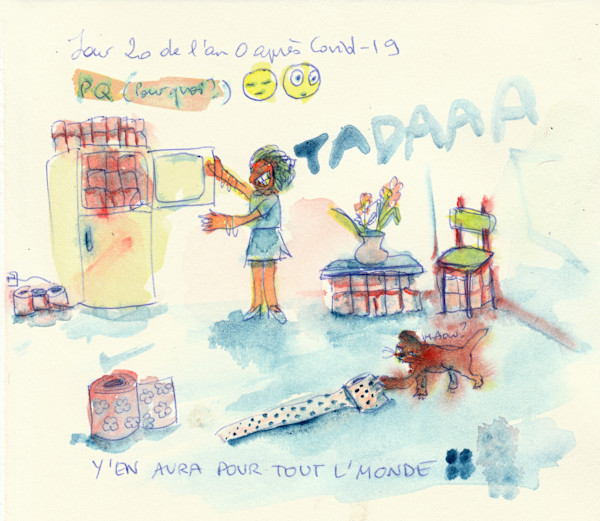 Jour 20 de l'an 0 après Covid-19
PQ (Pourquoi ?)
TADAAAA
MAOW ?
Y'EN AURA POUR TOUT L'MONDE